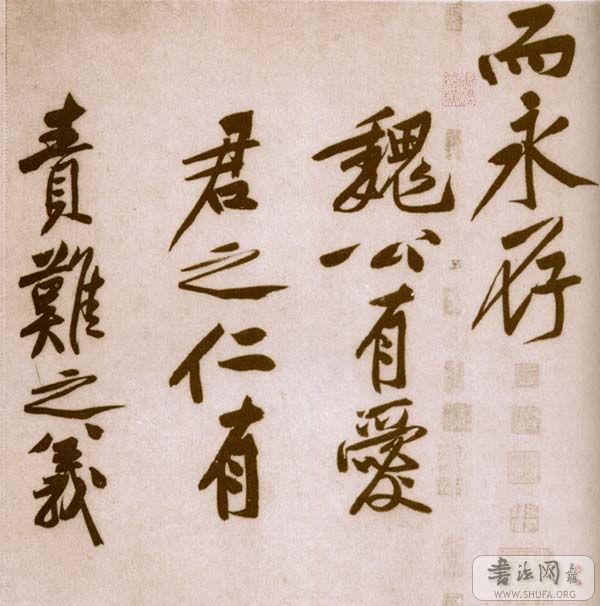 而永存
魏公有愛
君之仁有
責難之義
书法网
WWW.SHUFA.ORG